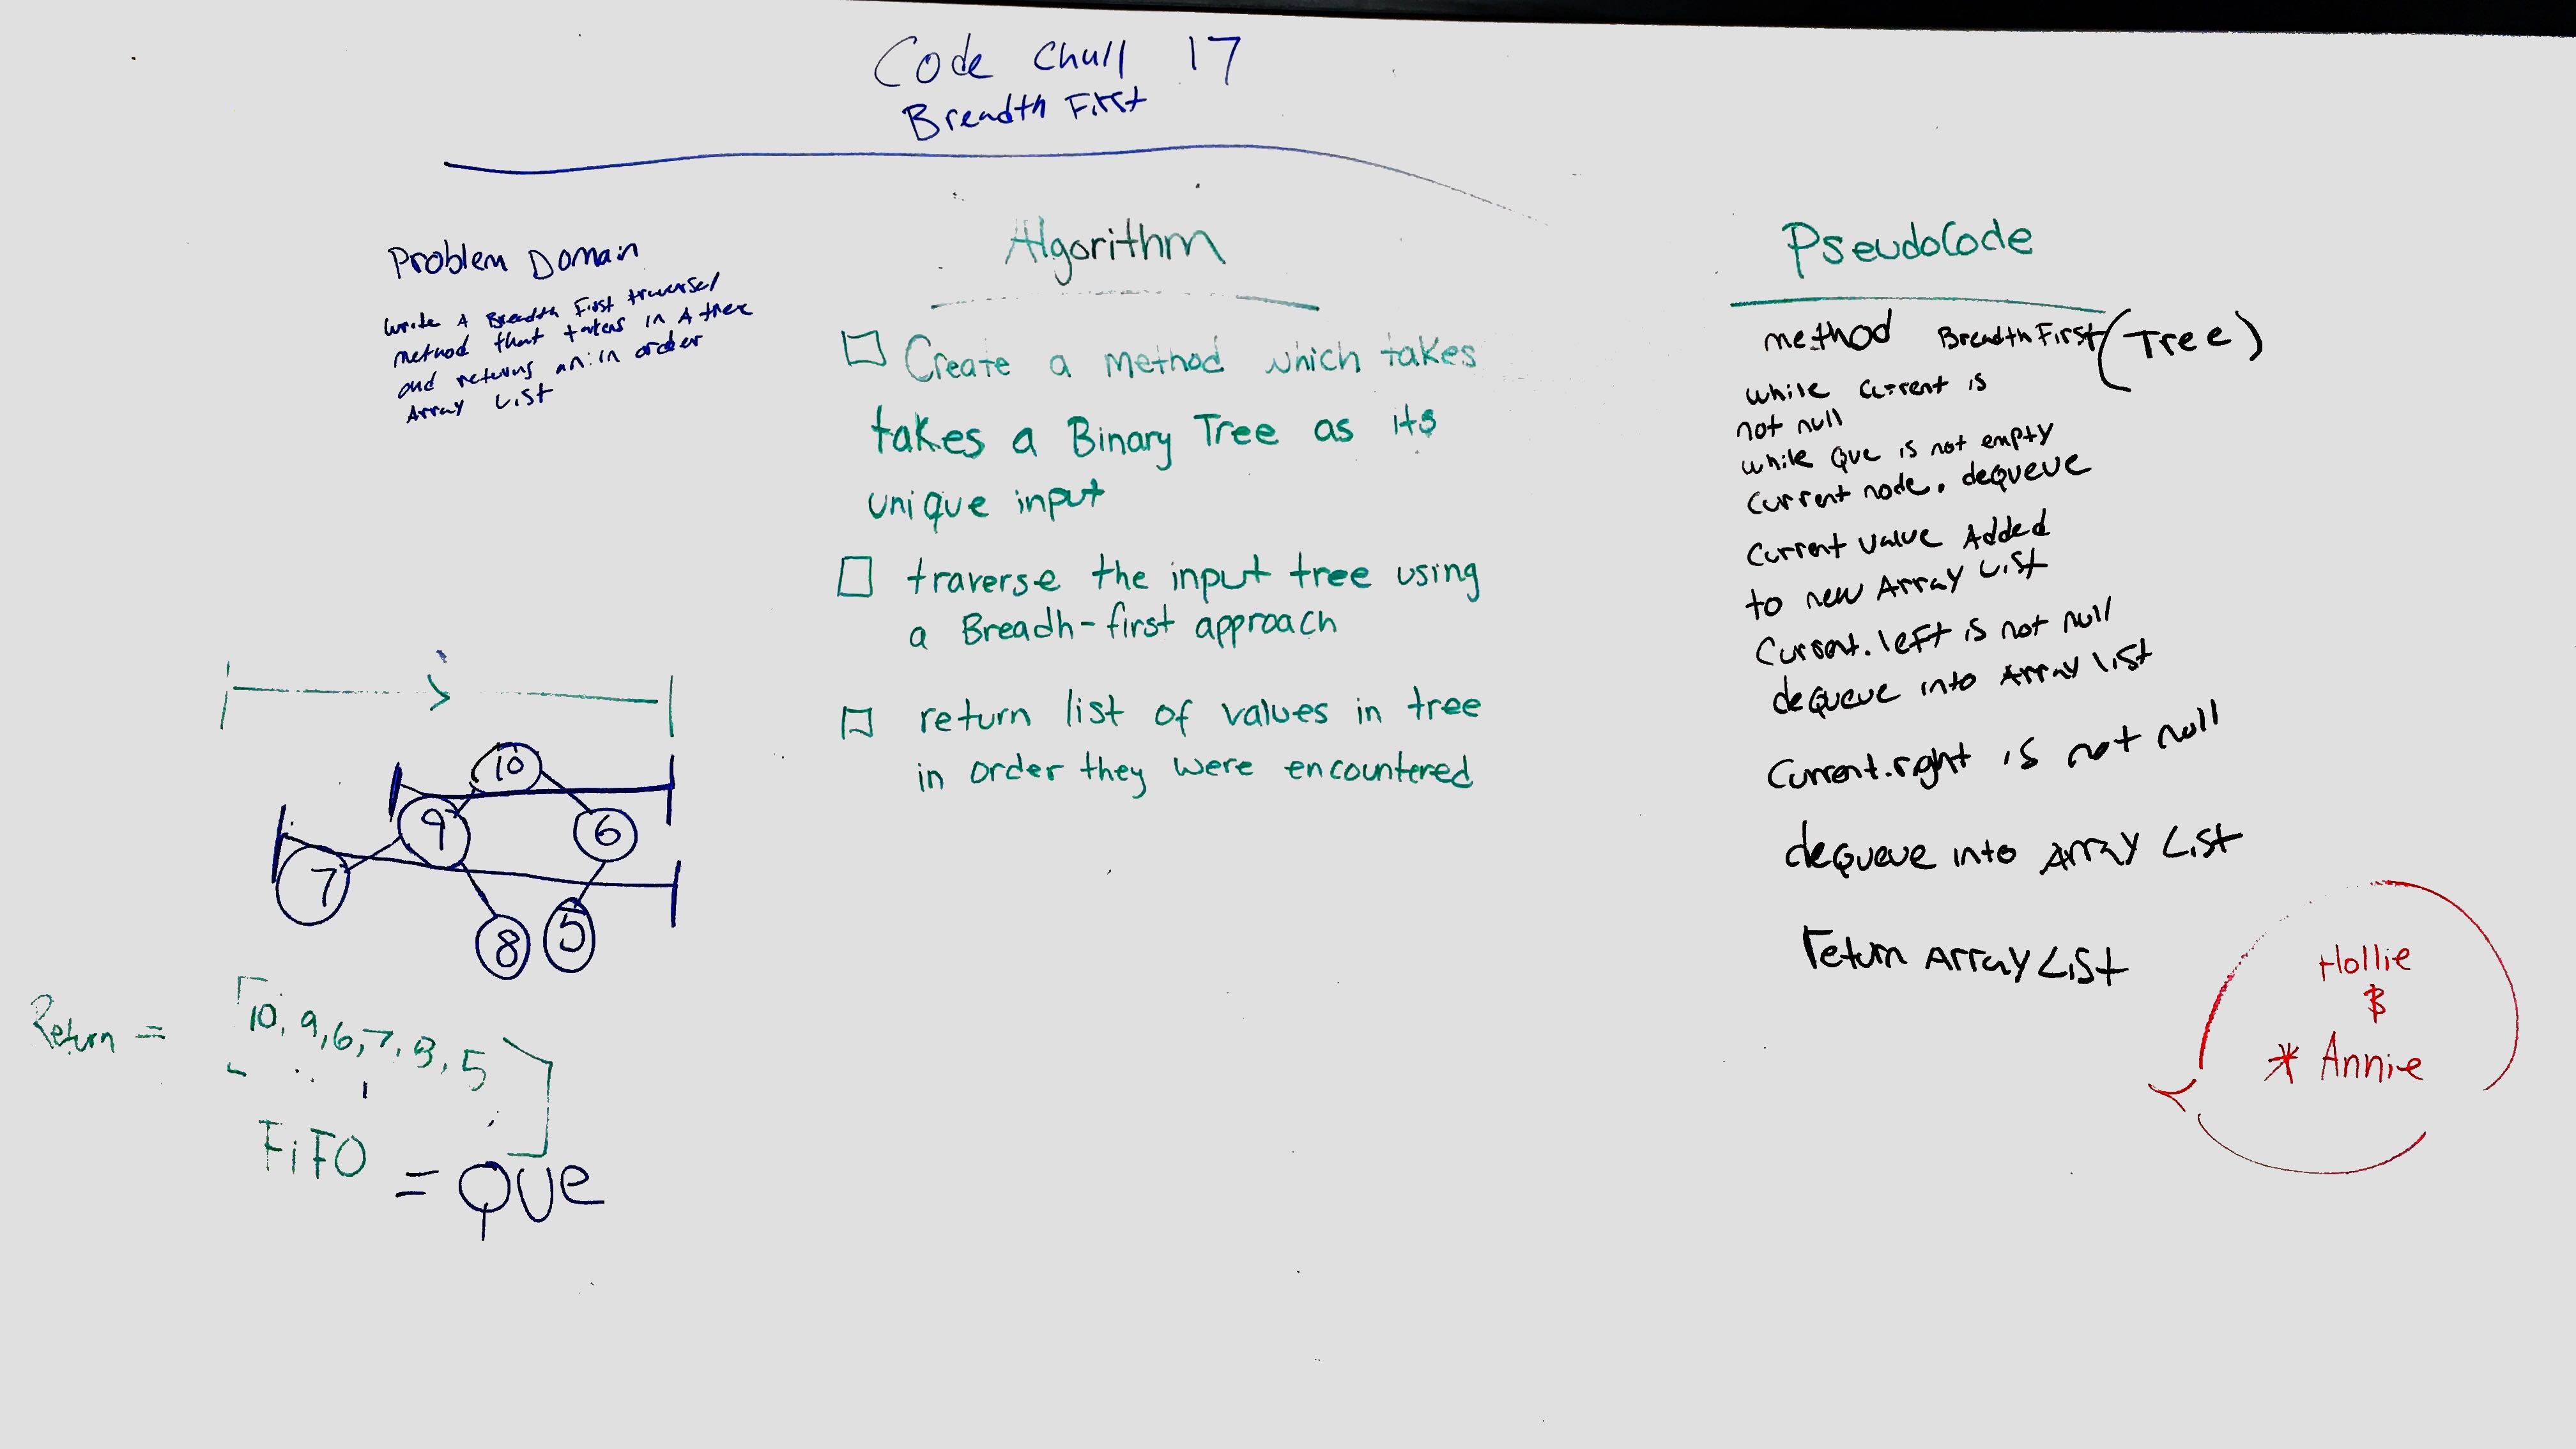 Code Chull 17
Breadth First
Problem Domain
write A Breadth First traversel
method that takens in A tree
and returns an in order
Array List
10
9
6
7
8
5
Return = [10, 9, 6, 7, 8, 5]
FiFO
= QUe
Algorithm
Create a method which takes
takes a Binary Tree as its
unique input
traverse the input tree using
a Breadh-first approach
return list of values in tree
in order they were encountered
PseudoCode
method BreadthFirst(Tree)
while current is
not null
while Que is not empty
current node. dequeue
current value Added
to new Array List
Current.left is not null
dequeue into Array list
Current.right is not null
dequeue into Array List
return ArrayList
Hollie
&
* Annie